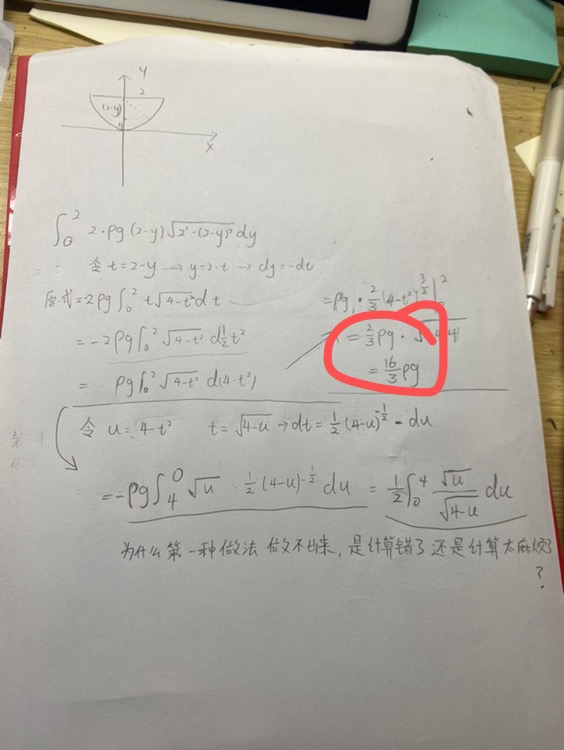 y
2
(2-y)
x
∫₀² 2·ρg(2-y)√(2²-(2-y)²) dy
令 t=2-y → y=2-t → dy=-dt
原式=2ρg∫₀² t√(4-t²) dt
=-2ρg∫₀² √(4-t²) d½t²
= ρg∫₀² √(4-t²) d(4-t²)
=ρg·⅔(4-t²)^(3/2)|²
=⅔ρg·
=16/3 ρg
令 u=4-t² t=√(4-u) → dt=½(4-u)^(-½)-du
=-ρg∫₄⁰ √u·½(4-u)^(-½) du = ½∫₀⁴ √u/√(4-u) du
为什么第一种做法做不出来,是计算错了还是计算太麻烦了
?